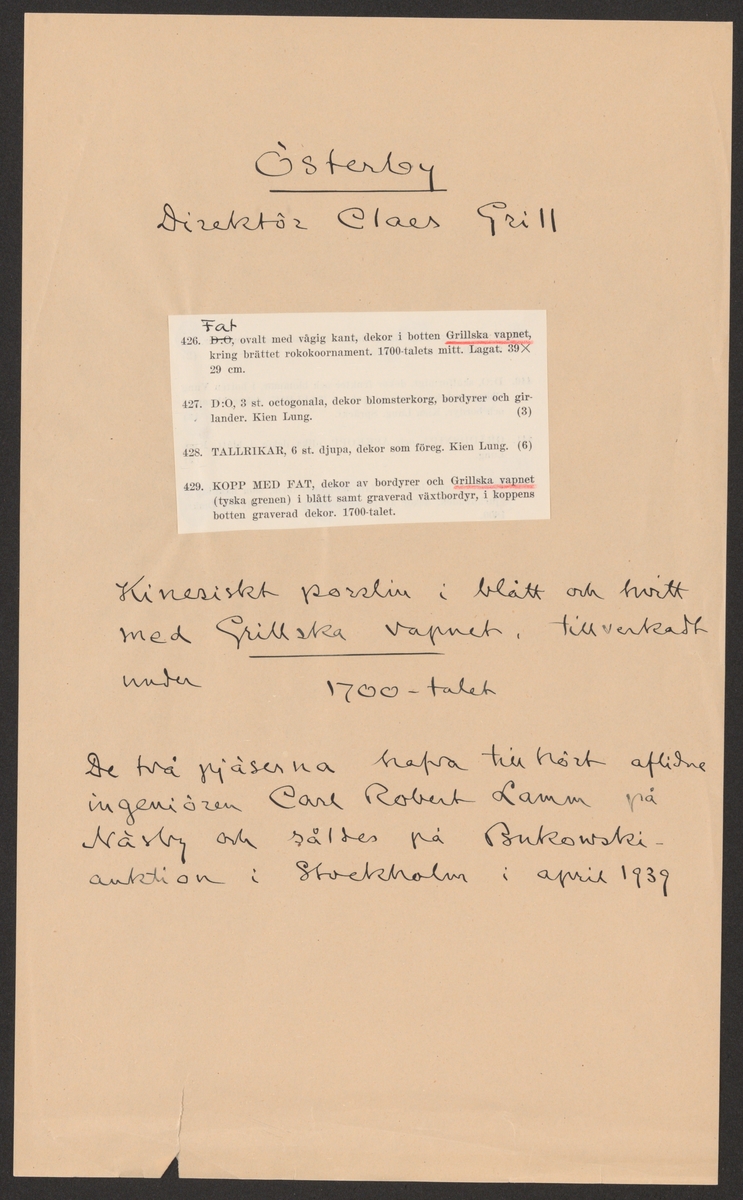 Österby
Direktör Claes Grill
Fat
426. D:O, ovalt med vågig kant, dekor i botten Grillska vapnet,
kring brättet rokokoornament. 1700-talets mitt. Lagat. 39×
29 cm.
427. D:O, 3 st. octogonala, dekor blomsterkorg, bordyrer och gir-
lander. Kien Lung. (3)
428. TALLRIKAR, 6 st. djupa, dekor som föreg. Kien Lung. (6)
429. KOPP MED FAT, dekor av bordyrer och Grillska vapnet
(tyska grenen) i blått samt graverad växtbordyr, i koppens
botten graverad dekor. 1700-talet.
Kinesiskt porslin i blått och hvitt
med Grillska vapnet, tillverkadt
under 1700-talet
De två pjäserna hafva tillhört aflidne
ingeniören Carl Robert Lamm på
Näsby och såldes på Bukowski-
auktion i Stockholm i april 1939